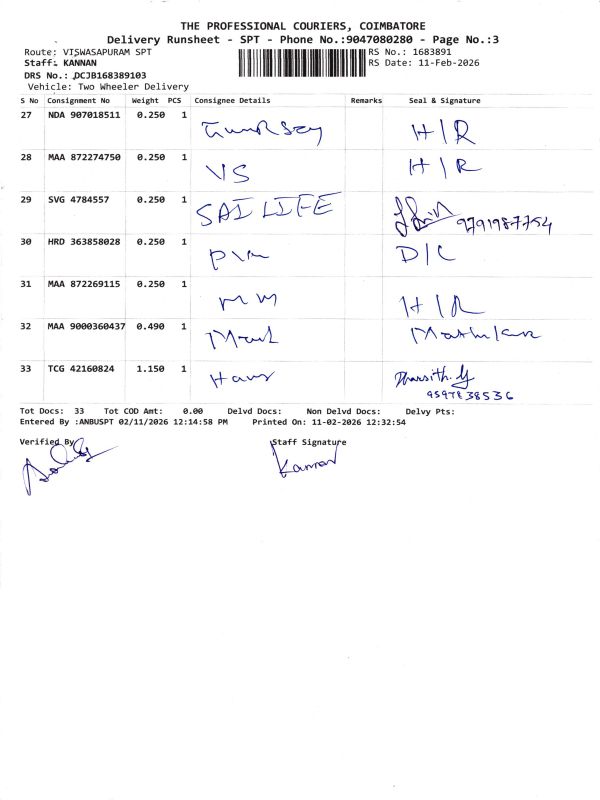 THE PROFESSIONAL COURIERS, COIMBATORE
Delivery Runsheet - SPT - Phone No.:9047080280 - Page No.:3
Route: VISWASAPURAM SPT RS No.: 1683891
Staff: KANNAN RS Date: 11-Feb-2026
DRS No.: DCJB168389103
Vehicle: Two Wheeler Delivery
S No Consignment No Weight PCS Consignee Details Remarks Seal & Signature
27 NDA 907018511 0.250 1 H/R
28 MAA 872274750 0.250 1 VS H/R
29 SVG 4784557 0.250 1 SAI LIFE 9791987754
30 HRD 363858028 0.250 1 D/C
31 MAA 872269115 0.250 1 H/R
32 MAA 9000360437 0.490 1
33 TCG 42160824 1.150 1 Dharsith. y
9597838536
Tot Docs: 33 Tot COD Amt: 0.00 Delvd Docs: Non Delvd Docs: Delvy Pts:
Entered By :ANBUSPT 02/11/2026 12:14:58 PM Printed On: 11-02-2026 12:32:54
Verified By Staff Signature
Kannan